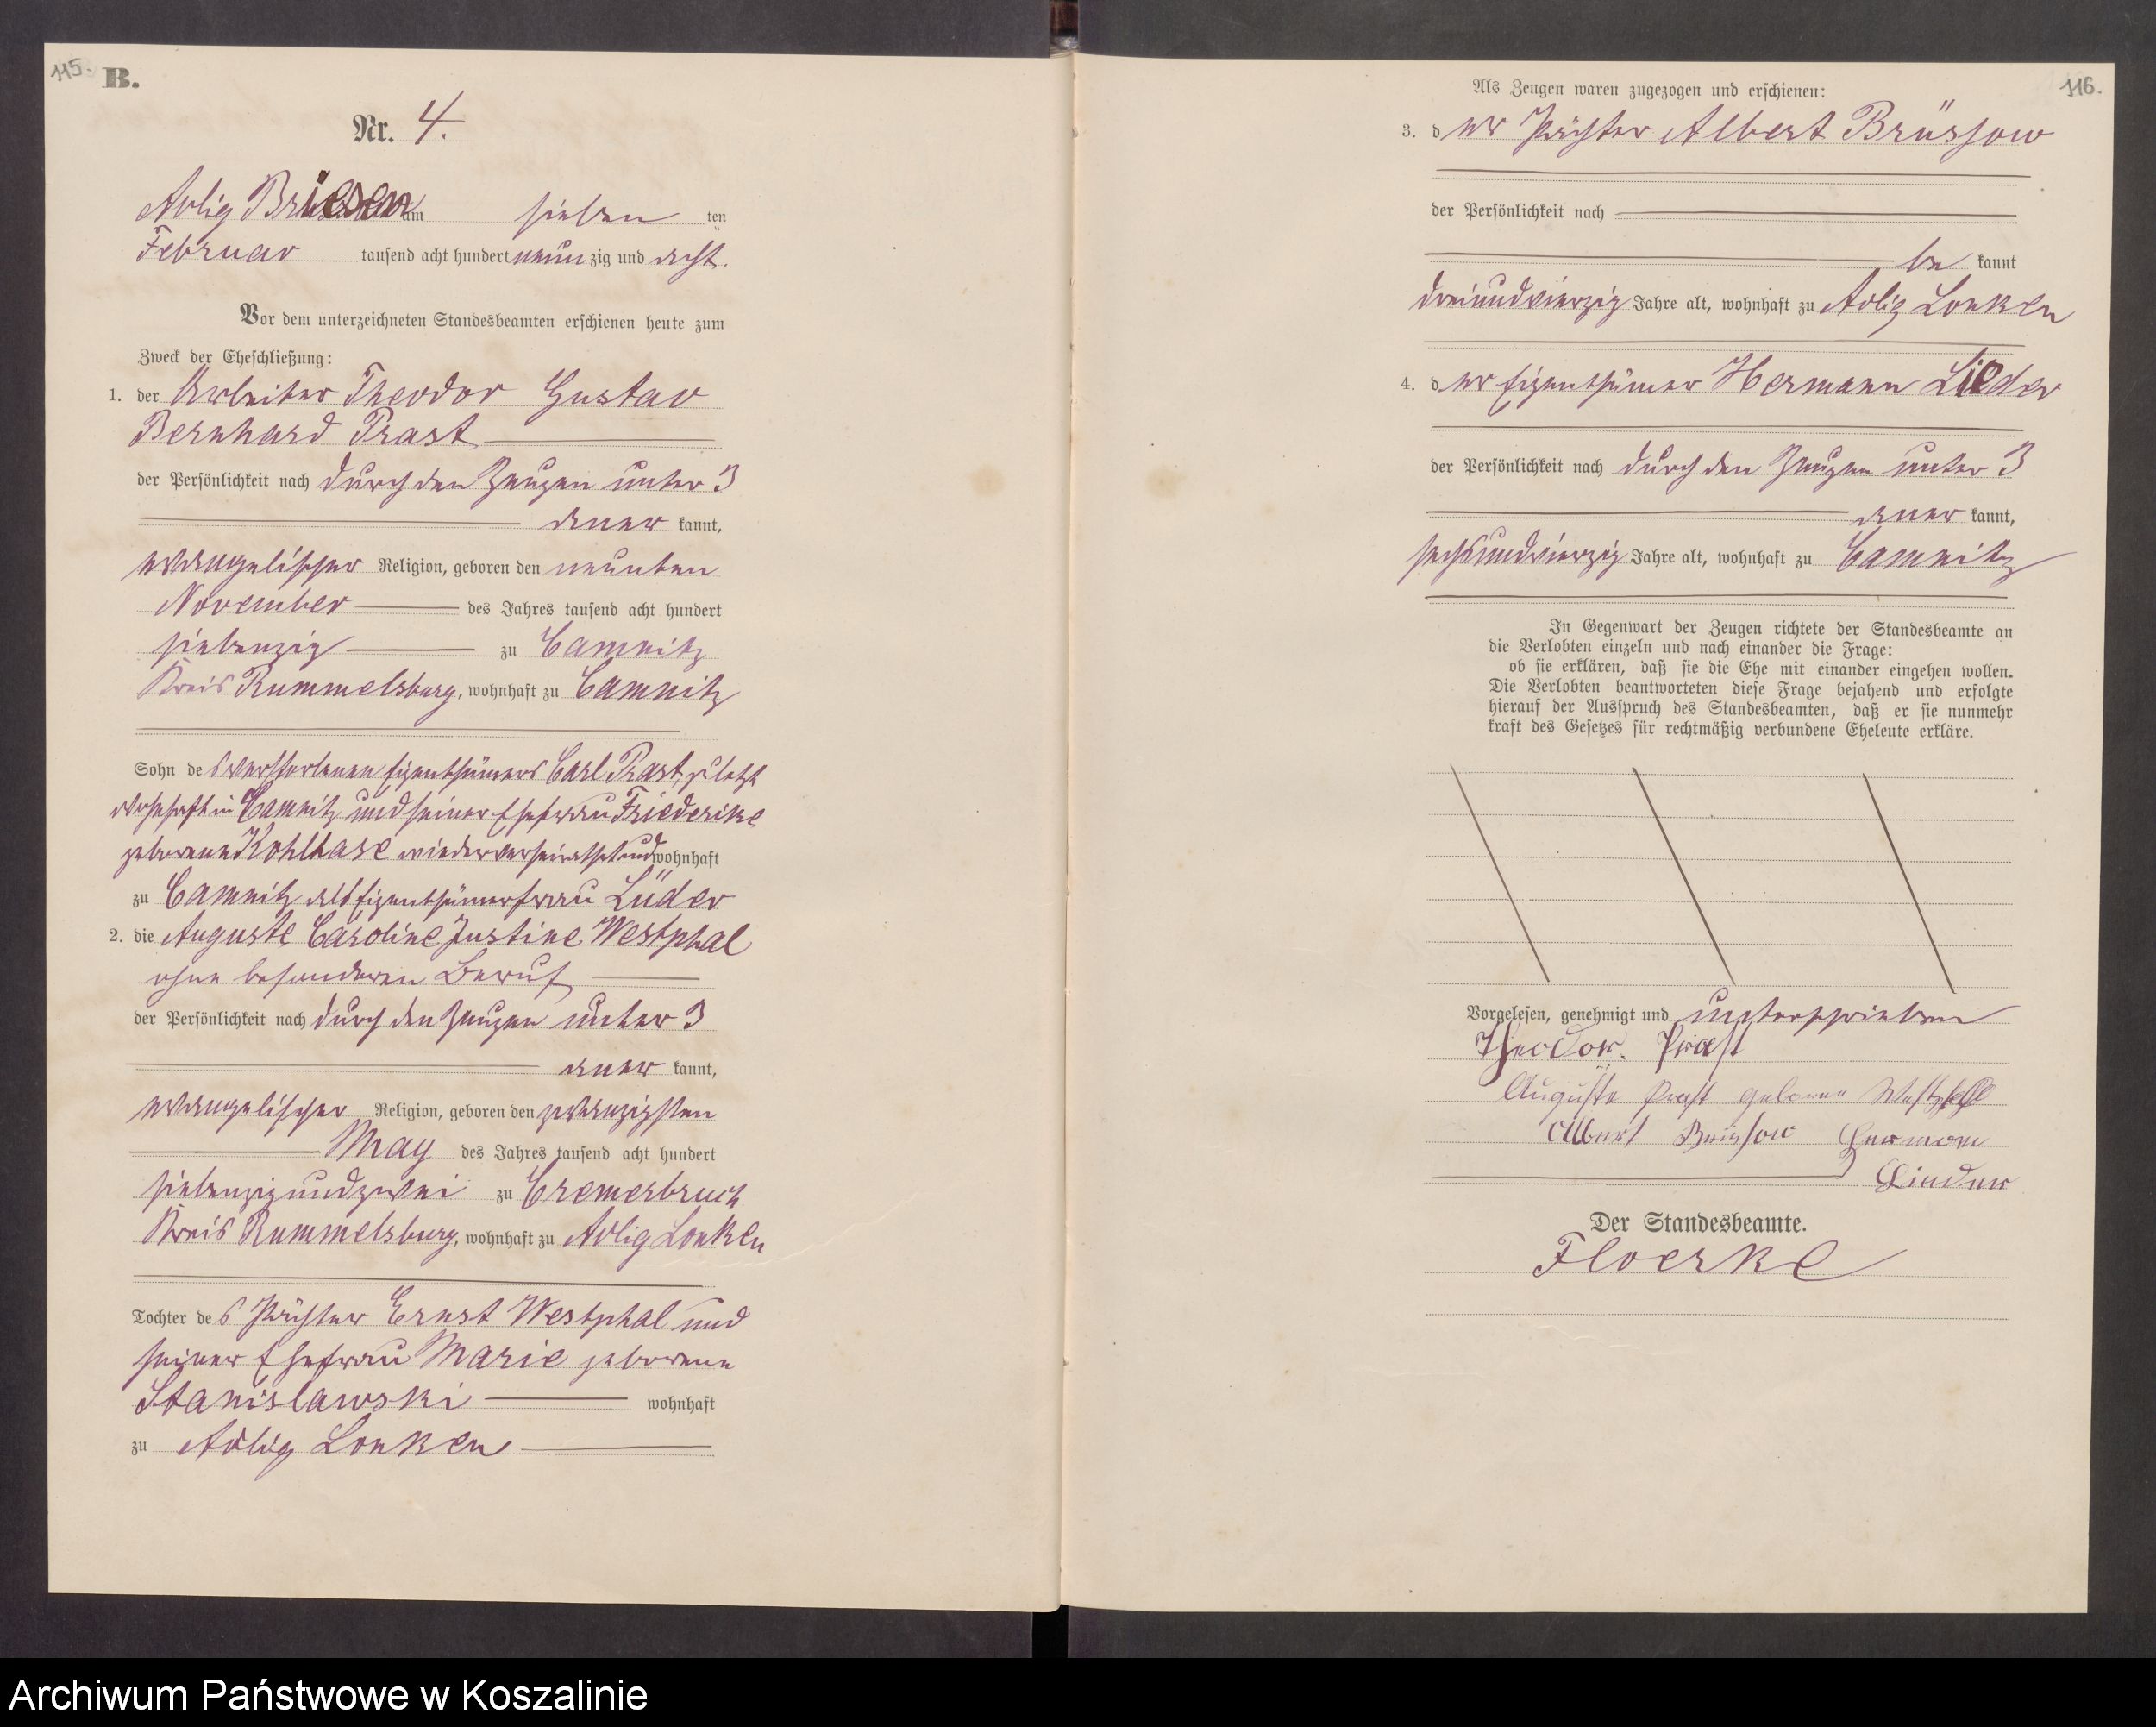 115.
B.
Nr. 4.
Adlig Briesen am sieben ten
Februar tausend acht hundert neun zig und acht.
Vor dem unterzeichneten Standesbeamten erschienen heute zum
Zweck der Eheschließung:
1. der Arbeiter Theodor Gustav
Bernhard Prast
der Persönlichkeit nach durch den Zeugen unter 3
aner kannt,
evangelischer Religion, geboren den neunten
November des Jahres tausend acht hundert
siebenzig zu Camnitz
Kreis Rummelsburg, wohnhaft zu Camnitz
Sohn des verstorbenen Eigenthümers Carl Prast, zuletzt
wohnhaft in Camnitz und seiner Ehefrau Friederike
geborene Kohlhase wiederverheirathet und wohnhaft
zu Camnitz als Eigenthümerfrau Lüder
2. die Auguste Caroline Justine Westphal
ohne besonderen Beruf
der Persönlichkeit nach durch den Zeugen unter 3
aner kannt,
evangelischer Religion, geboren den zwanzigsten
May des Jahres tausend acht hundert
siebenzig und zwei zu Cremerbruch
Kreis Rummelsburg, wohnhaft zu Adlig Lonken
Tochter des Pächter Ernst Westphal und
seiner Ehefrau Marie geborene
Stanislawski wohnhaft
zu Adlig Lonken
116.
Als Zeugen waren zugezogen und erschienen:
3. der Pächter Albert Brüssow
der Persönlichkeit nach
be kannt
dreiundvierzig Jahre alt, wohnhaft zu Adlig Lonken
4. der Eigenthümer Hermann Lieder
der Persönlichkeit nach durch den Zeugen unter 3
aner kannt,
sechsundvierzig Jahre alt, wohnhaft zu Camnitz
In Gegenwart der Zeugen richtete der Standesbeamte an
die Verlobten einzeln und nach einander die Frage:
ob sie erklären, daß sie die Ehe mit einander eingehen wollen.
Die Verlobten beantworteten diese Frage bejahend und erfolgte
hierauf der Ausspruch des Standesbeamten, daß er sie nunmehr
kraft des Gesetzes für rechtmäßig verbundene Eheleute erkläre.
Vorgelesen, genehmigt und unterschrieben
Theodor. Prast
Auguste Prast geborene Westphal
Albert Brüssow Hermann
Lieder
Der Standesbeamte.
Floerke
Archiwum Państwowe w Koszalinie